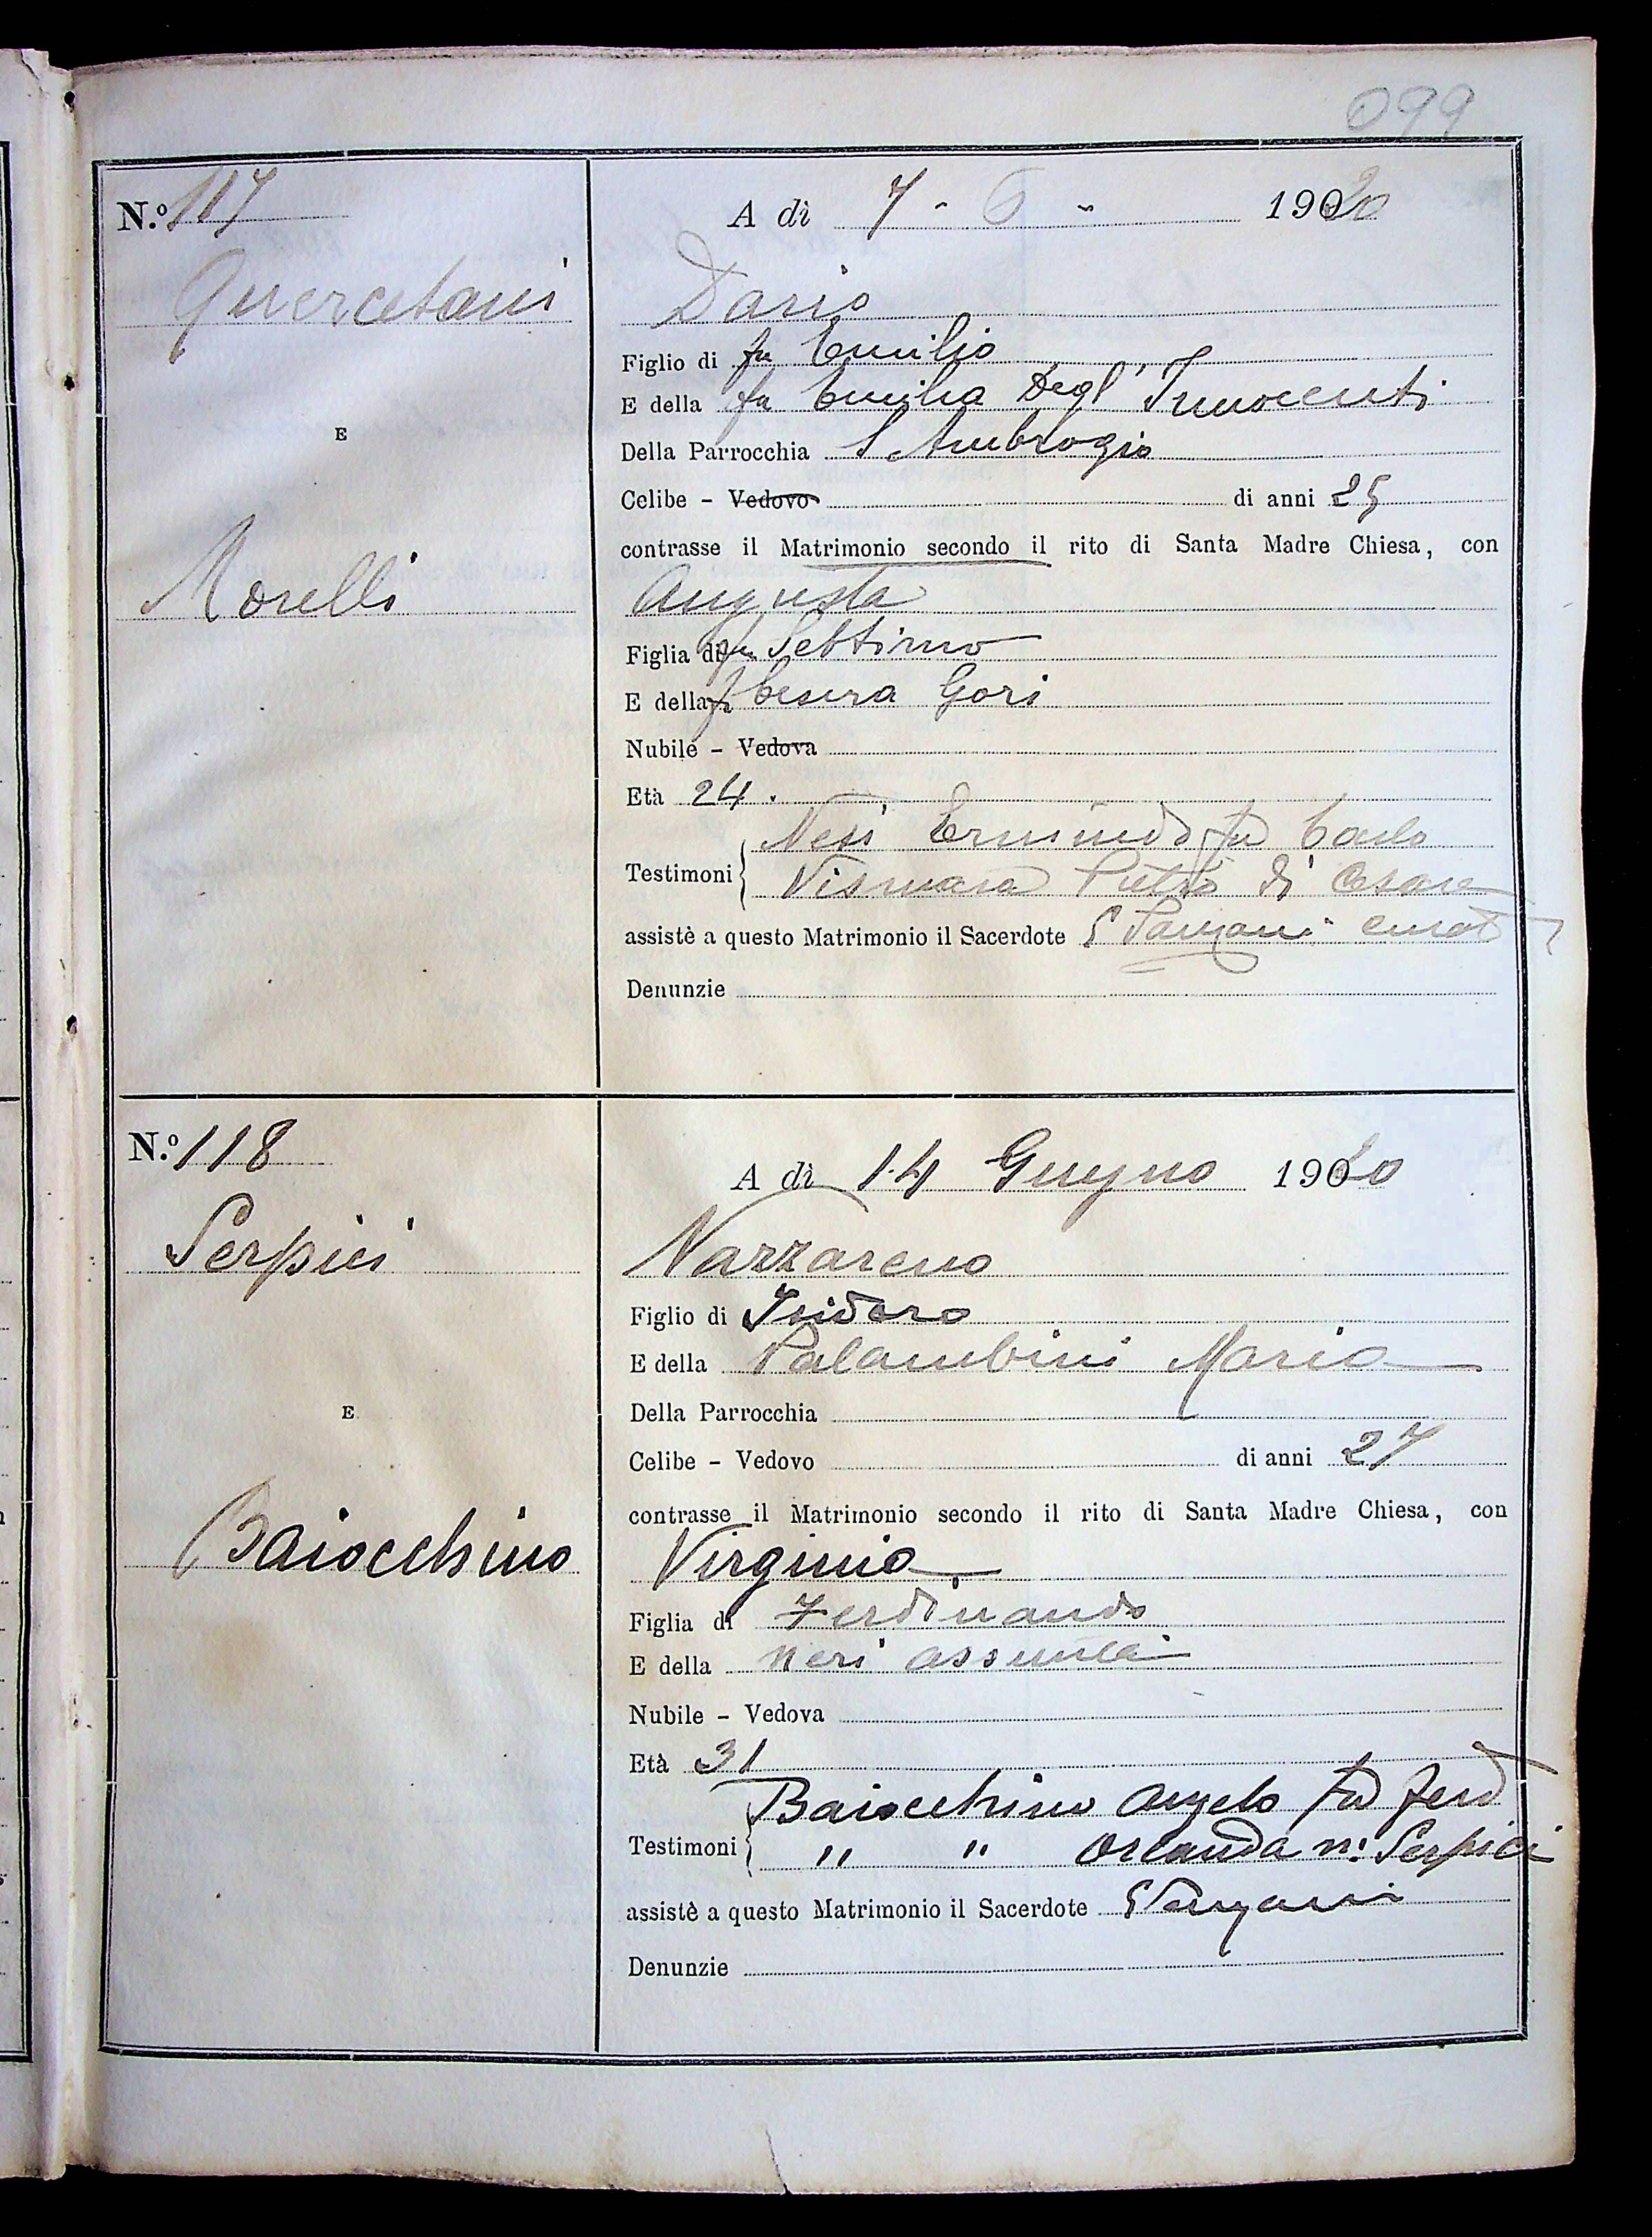 099
N.º 117
A dì 7 - 6 - 1920
Quercetani
Dario
Figlio di fu Emilio
E della fu Emilia Degl'Innocenti
E
Della Parrocchia S Ambrogio
Celibe - Vedovo di anni 25
contrasse il Matrimonio secondo il rito di Santa Madre Chiesa, con
Morelli
Augusta
Figlia di fu Settimo
E della fu Cesira Gori
Nubile - Vedova
Età 24.
Nesi fu Carlo
Testimoni
Vismara Pietro di Cesare
assistè a questo Matrimonio il Sacerdote
Denunzie
N.º 118
A dì 14 Giugno 1920
Serpici
Nazzareno
Figlio di Isidoro
E della Palambini Maria
E
Della Parrocchia
Celibe - Vedovo di anni 27
contrasse il Matrimonio secondo il rito di Santa Madre Chiesa, con
Baiocchino
Virginia
Figlia di Ferdinando
E della Neri Assunta
Nubile - Vedova
Età 31
Baiocchino Angelo fu Ferd
Testimoni
" " Orlanda n. Serpici
assistè a questo Matrimonio il Sacerdote
Denunzie